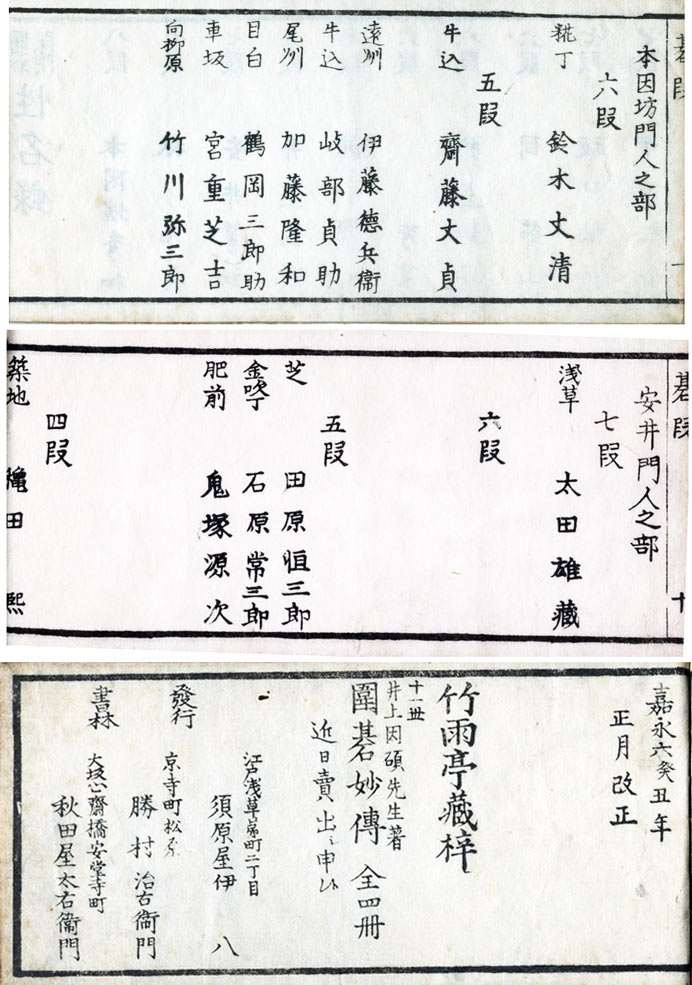 碁段
本因坊門人之部
六段
糀丁 鈴木丈清
五段
牛込 齋藤丈貞
遠州 伊藤德兵衞
牛込 岐部貞助
尾州 加藤隆和
目白 鶴岡三郎助
車坂 宮重芝吉
向柳原 竹川弥三郎
碁段 十
安井門人之部
七段
浅草 太田雄藏
六段
五段
芝 田原恒三郎
金吹丁 石原常三郎
肥前 鬼塚源次
四段
築地 亀田熙
嘉永六癸丑年
正月改正
竹雨亭藏梓
十一世
井上因碩先生著
圍碁妙傳 全四冊
近日賣出シ申候
江戸浅草茅町二丁目
須原屋伊八
發行
京寺町松原
勝村治右衞門
書林
大坂心齋橋安堂寺町
秋田屋太右衞門